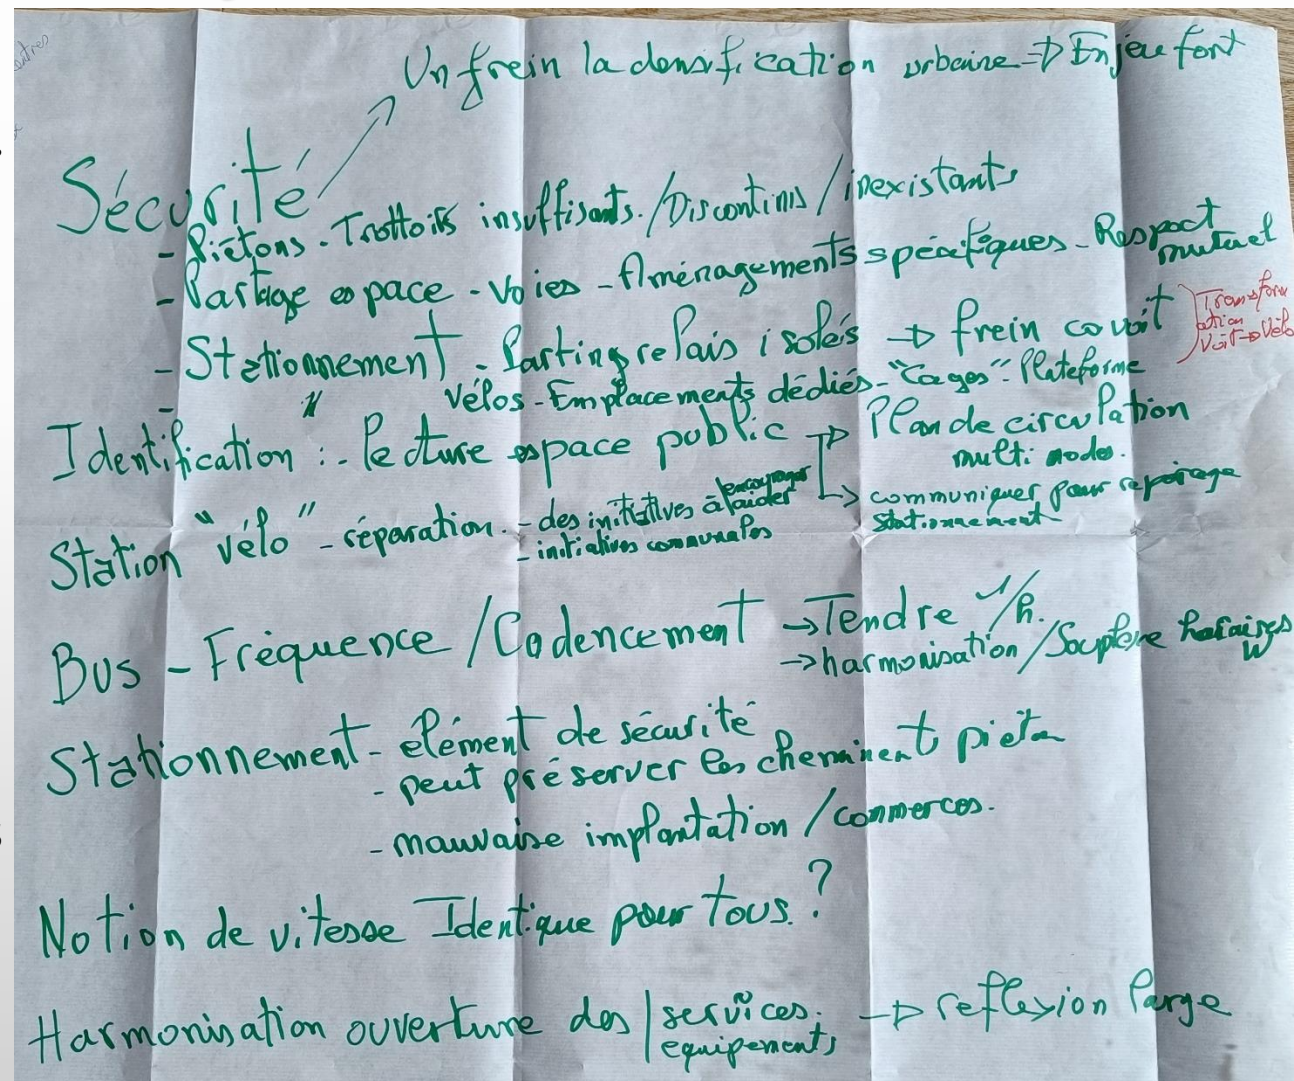 Un frein la densification urbaine => Enjeu fort
Sécurité
- Piétons - Trottoirs insuffisants / Discontinus / inexistants
- Partage espace - Voies - Aménagements spécifiques - Respect mutuel
- Stationnement - Parking relais isolés -> frein covoit
Transform
ation
Voit -> Vélo
- " vélos - Emplacements dédiés - "Cages" - Plateforme
Identification : - lecture espace public -> Plan de circulation
multi modes.
-> communiquer pour repérage
stationnement
Station "vélo" - réparation. - des initiatives à encourager / aider
- initiatives communales
Bus - Fréquence / Cadencement -> Tendre 1/h.
-> harmonisation / Souplesse horaires
Stationnement - elément de sécurité
- peut préserver les cheminent piéton
- mauvaise implantation / commerces.
Notion de vitesse Identique pour tous ?
Harmonisation ouverture des | services. -> reflexion large
equipements